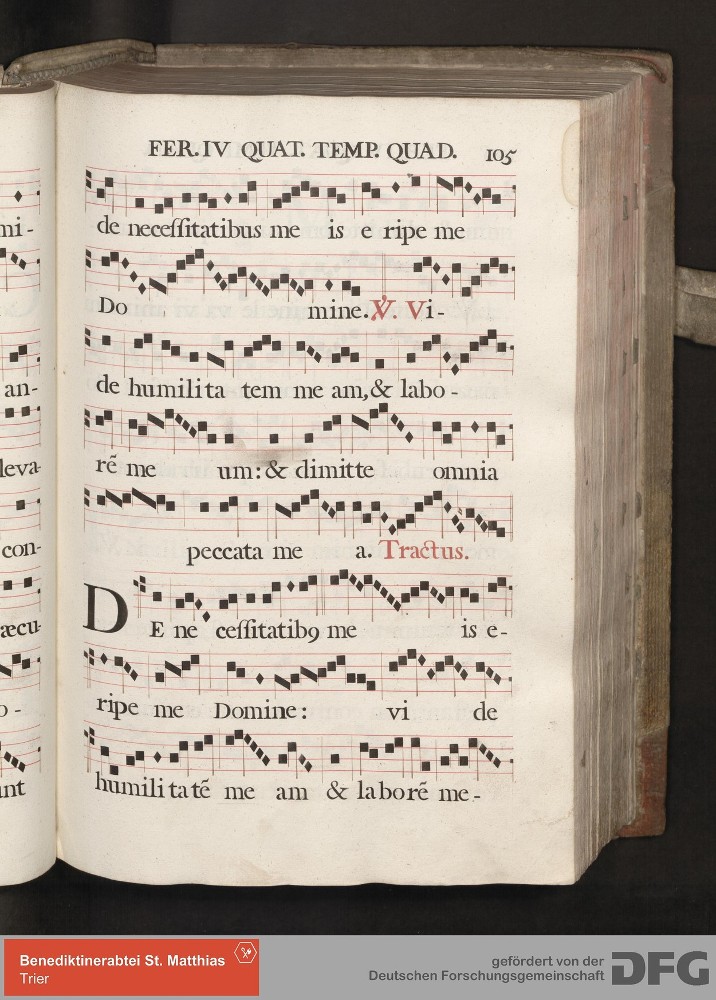 FER. IV QUAT. TEMP. QUAD. 105
de necessitatibus me is eripe me
Do mine. ℣. Vi-
de humilita tem me am, & labo-
rẽ me um: & dimitte omnia
peccata me a. Tractus.
DE ne cessitatibꝯ me is e-
ripe me Domine: vi de
humilitatẽ me am & laborẽ me-
mi-
an-
leva-
con-
æcu-
o-
unt
Benediktinerabtei St. Matthias
Trier
gefördert von der
Deutschen Forschungsgemeinschaft
DFG